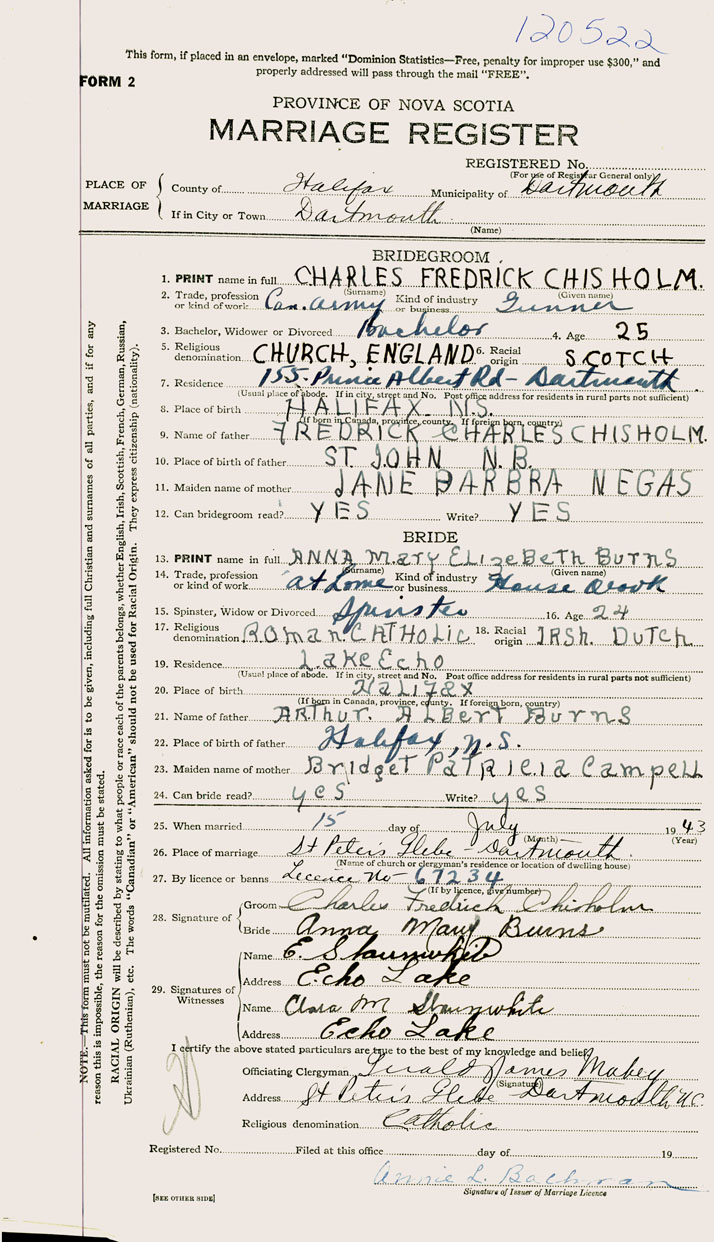 120522
This form, if placed in an envelope, marked "Dominion Statistics—Free, penalty for improper use $300," and
properly addressed will pass through the mail "FREE".
FORM 2
PROVINCE OF NOVA SCOTIA
MARRIAGE REGISTER
REGISTERED No.
(For use of Registrar General only)
PLACE OF MARRIAGE
County of Halifax Municipality of Dartmouth
If in City or Town Dartmouth
(Name)
BRIDEGROOM
1. PRINT name in full CHARLES FREDRICK CHISHOLM.
(Surname) (Given name)
2. Trade, profession or kind of work Can. Army Kind of industry or business Gunner
3. Bachelor, Widower or Divorced Bachelor 4. Age 25
5. Religious denomination CHURCH, ENGLAND 6. Racial origin SCOTCH
7. Residence 155 Prince Albert Rd - Dartmouth
(Usual place of abode. If in city, street and No. Post office address for residents in rural parts not sufficient)
8. Place of birth HALIFAX N.S.
(If born in Canada, province, county. If foreign born, country)
9. Name of father FREDRICK CHARLES CHISHOLM.
10. Place of birth of father ST. JOHN N.B.
11. Maiden name of mother JANE BARBRA NEGAS
12. Can bridegroom read? YES Write? YES
BRIDE
13. PRINT name in full ANNA Mary ELIzeBeth Burns
(Surname) (Given name)
14. Trade, profession or kind of work at home Kind of industry or business House work
15. Spinster, Widow or Divorced Spinster 16. Age 24
17. Religious denomination Roman CATHolic 18. Racial origin IRSH. DUTCH
19. Residence Lake Echo
(Usual place of abode. If in city, street and No. Post office address for residents in rural parts not sufficient)
20. Place of birth Halifax
(If born in Canada, province, county. If foreign born, country)
21. Name of father ARThur. ALBert Burns
22. Place of birth of father Halifax, N.S.
23. Maiden name of mother Bridget PaTRicia Campell
24. Can bride read? yes Write? yes
25. When married 15 day of July 1943
(Month) (Year)
26. Place of marriage St Peter's Glebe - Dartmouth.
(Name of church or clergyman's residence or location of dwelling house)
27. By licence or banns Licence No - 67234
(If by licence, give number)
28. Signature of Groom Charles Fredrick Chisholm
Bride Anna Mary Burns
29. Signatures of Witnesses
Name E. Staunwhite
Address Echo Lake
Name Clara M Staunwhite
Address Echo Lake
I certify the above stated particulars are true to the best of my knowledge and belief.
Officiating Clergyman Gerald James Mabey
(Signature)
Address St Peter's Glebe Dartmouth N.S.
Religious denomination Catholic
Registered No. Filed at this office day of 19
Annie L. Bachman
Signature of Issuer of Marriage Licence
[SEE OTHER SIDE]
NOTE.—This form must not be mutilated. All information asked for is to be given, including full Christian and surnames of all parties, and if for any
reason this is impossible, the reason for the omission must be stated.
RACIAL ORIGIN will be described by stating to what people or race each of the parents belongs, whether English, Irish, Scottish, French, German, Russian,
Ukrainian (Ruthenian), etc. The words "Canadian" or "American" should not be used for Racial Origin. They express citizenship (nationality).